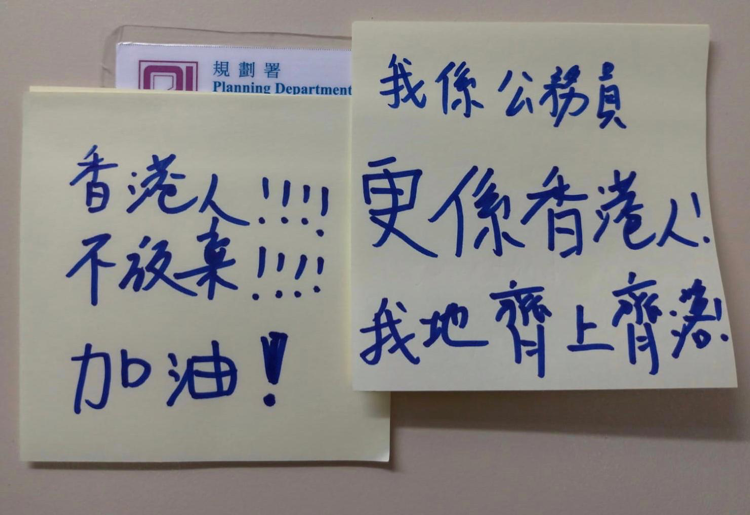 規劃署
Planning Department
香港人!!!!
不放棄!!!!
加油!
我係公務員
更係香港人!
我地齊上齊落!